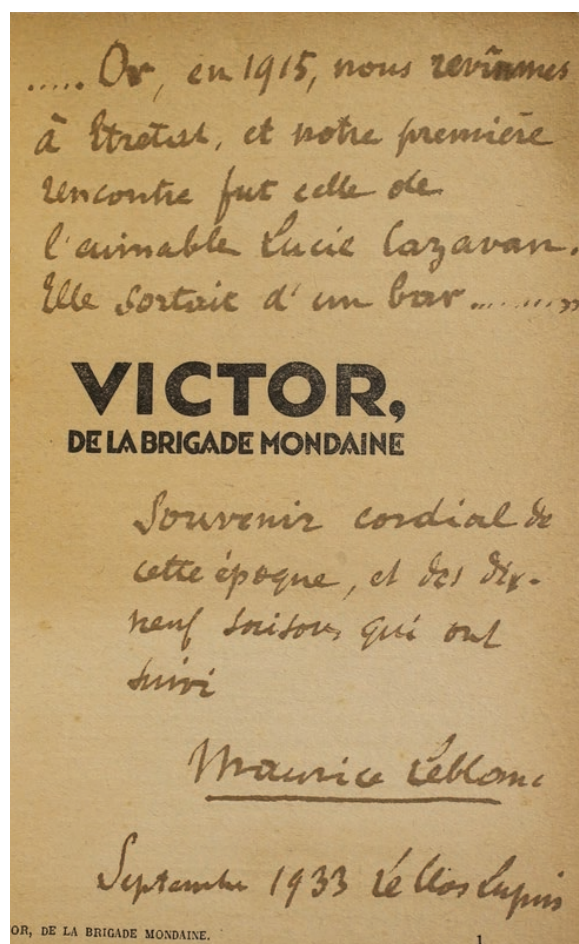 ..... Or, en 1915, nous revînmes
à Etretat, et notre première
rencontre fut celle de
l'aimable Lucie Cazavan.
Elle sortait d'un bar.........»
VICTOR,
DE LA BRIGADE MONDAINE
Souvenir cordial de
cette époque, et des dix-
neuf saisons qui ont
suivi
Maurice Leblanc
Septembre 1933 Le Clos Lupin
OR, DE LA BRIGADE MONDAINE. 1